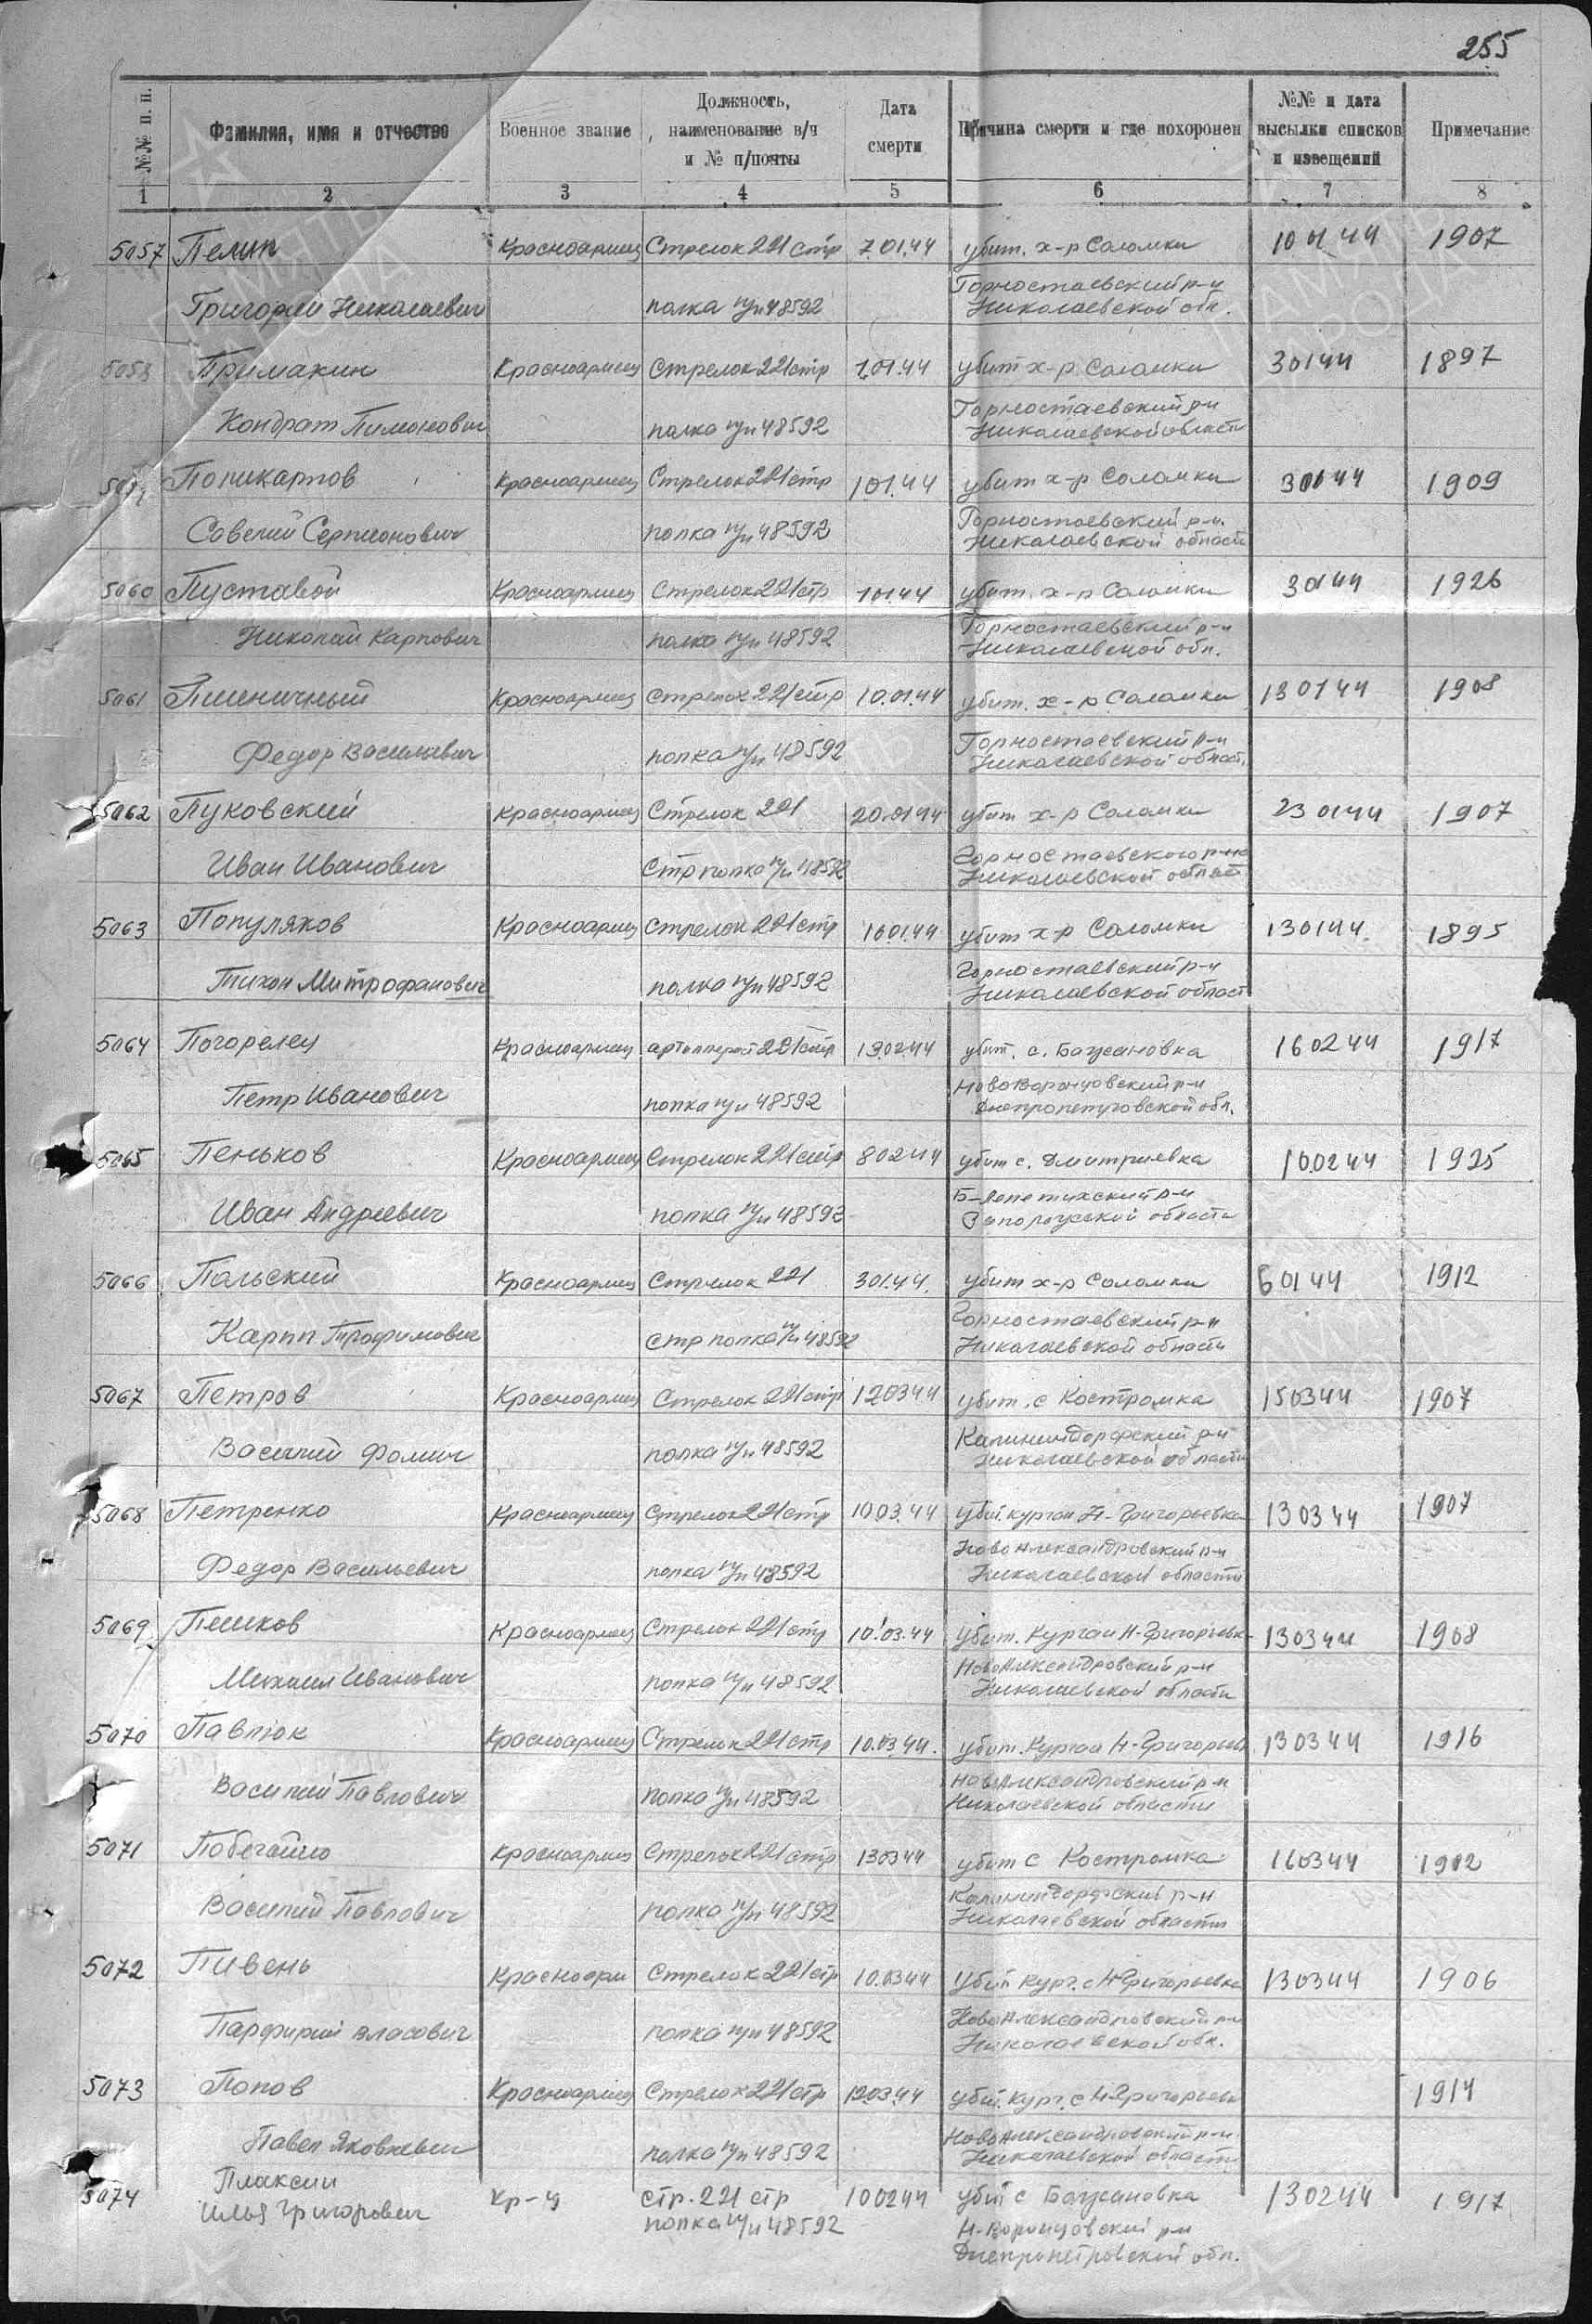 255
№№ п. п. Фамилия, имя и отчество Военное звание Должность, наименование в/ч и № п/почты Дата смерти Причина смерти и где похоронен №№ и дата высылки списков и извещений Примечание
1 2 3 4 5 6 7 8
5057 Пелип Красноармеец Стрелок 221 стр 7.01.44 убит. х-р Соломки 10 01 44 1907
Григорий Николаевич полка п/п 48592 Горностаевский р-н
Николаевской обл.
5058 Примакин Красноармеец Стрелок 221 стр 1.01.44 убит х-р Соломки 30144 1897
Кондрат Пимонович полка п/п 48592 Горностаевский р-н
Николаевской области
Поликарпов Красноармеец Стрелок 221 стр 1.01.44 убит х-р Соломки 30144 1909
Савелий полка п/п 48592 Горностаевский р-н.
Николаевской области
5060 Пуставой Красноармеец Стрелок 221 стр 10144 убит. х-р Соломки 30144 1926
Николай Карпович полка п/п 48592 Горностаевский р-н
Николаевской обл.
5061 Пшеничный Красноармеец Стрелок 221 стр 10.01.44 убит. х-р Соломки 130144 1908
Федор Василевич полка п/п 48592 Горностаевский р-н
Николаевской област.
5062 Пуковский Красноармеец Стрелок 221 20.0144 убит х-р Соломки 230144 1907
Иван Иванович Стр полка п/п 48592 Горностаевского р-на
Николаевской област
5063 Популяков Красноармеец Стрелок 221 стр 100144 убит х-р Соломки 130144 1895
Тихон Митрофанович полка п/п 48592 Горностаевский р-н
Николаевской област
5064 Погорелец Красноармеец 221 стр 130244 убит. с. Бажановка 160244 1917
Петр Иванович полка п/п 48592 НовоВоронцовский р-н
Днепропетровской обл.
5065 Пеньков Красноармеец Стрелок 221 стр 80244 убит с. Дмитриевка 100244 1925
Иван Андреевич полка п/п 48592 Б-Лепетихский р-н
Запорожской области
5066 Польский Красноармеец Стрелок 221 301.44. убит х-р Соломки 60144 1912
Карпп Трофимович стр полка п/п 48592 Горностаевский р-н
Николаевской области
5067 Петров Красноармеец Стрелок 221 стр 120344 убит. с Костромка 150344 1907
Василий Фомич полка п/п 48592 Калининдорфский р-н
Николаевской области
5068 Петренко Красноармеец Стрелок 221 стр 10.03.44 убит. курган Н-Григорьевка 130344 1907
Федор Васильевич полка п/п 48592 НовоАлександровский р-н
Николаевской области
5069 Пешков Красноармеец Стрелок 221 стр 10.03.44 убит. Курган Н-Григорьевк 130344 1908
Михаил Иванович полка п/п 48592 НовоАлександровский р-н
Николаевской области
5070 Павлюк Красноармеец Стрелок 221 стр 10.0344. убит. Курган Н-Григорьев 130344 1916
Василий Павлович полка п/п 48592 НовоАлександровский р-н
Николаевской области
5071 Побегайло Красноармеец Стрелок 221 стр 130344 убит с Костромка 160344 1902
Василий Павлович полка п/п 48592 Калининдорфский р-н
Николаевской области
5072 Пивень Красноарм Стрелок 221 стр 10.0344 убит кург. с Н-Григорьевка 130344 1906
Парфирий Власович полка п/п 48592 НовоАлександровский р-н
Николаевской обл.
5073 Попов Красноармеец Стрелок 221 стр 12.03.44 убит. кург. с Н-Григорьевк 1914
Павел Яковлевич полка п/п 48592 НовоАлександровский р-н
Николаевской области
5074 Плаксин Кр-ц стр. 221 стр 100244 убит с Бажановка 130244 1917
Илья Григорович полка п/п 48592 Н-Воронцовский р-н
Днепропетровской обл.